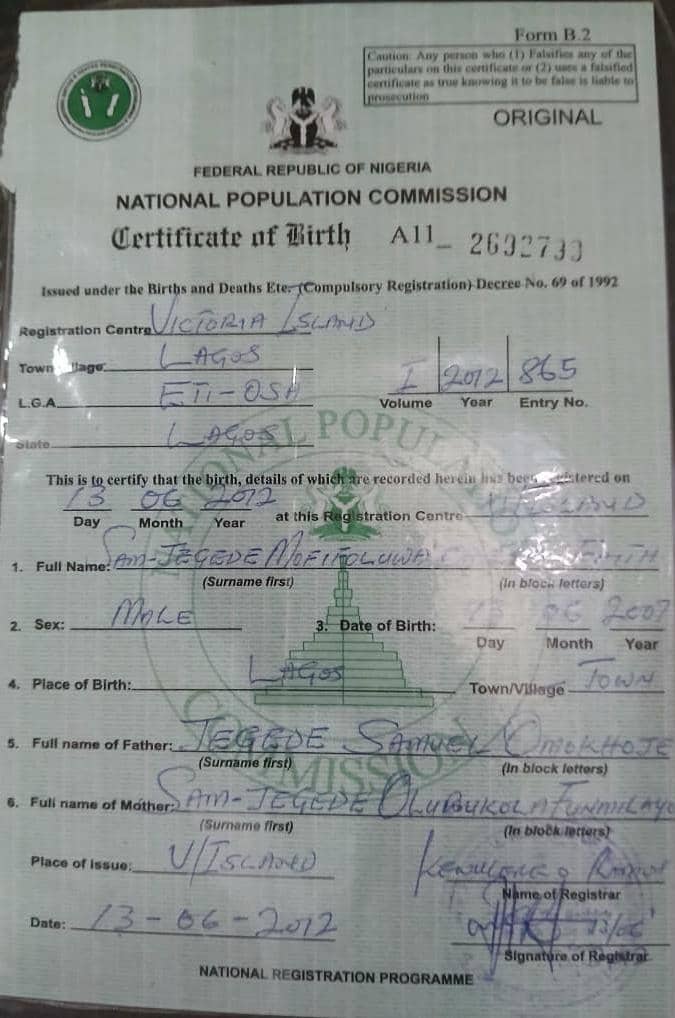 Form B.2
Caution: Any person who (1) Falsifies any of the
particulars on this certificate or (2) uses a falsified
certificate as true knowing it to be false is liable to
prosecution
ORIGINAL
FEDERAL REPUBLIC OF NIGERIA
NATIONAL POPULATION COMMISSION
Certificate of Birth A11_
Issued under the Births and Deaths Etc. (Compulsory Registration) Decree No. 69 of 1992
Registration Centre VICTORIA ISLAND
Town LAGOS
L.G.A. ETI-OSA
I 2012 865
Volume Year Entry No.
State LAGOS
NATIONAL POPULATION COMMISSION
This is to certify that the birth, details of which are recorded herein has been registered on
13 06 2012 at this Registration Centre V/ISLAND
Day Month Year
1. Full Name: SAM-JEGEDE
(Surname first) (In block letters)
2. Sex: MALE 3. Date of Birth: 06
Day Month Year
4. Place of Birth: LAGOS Town/Village TOWN
5. Full name of Father: JEGEDE SAMUEL OMOKHOJE
(Surname first) (In block letters)
6. Full name of Mother: SAM-JEGEDE OLUBUKOLA FUNMILAYO
(Surname first) (In block letters)
Place of issue: V/ISLAND
Name of Registrar
Date: 13-06-2012 13/06
Signature of Registrar
NATIONAL REGISTRATION PROGRAMME